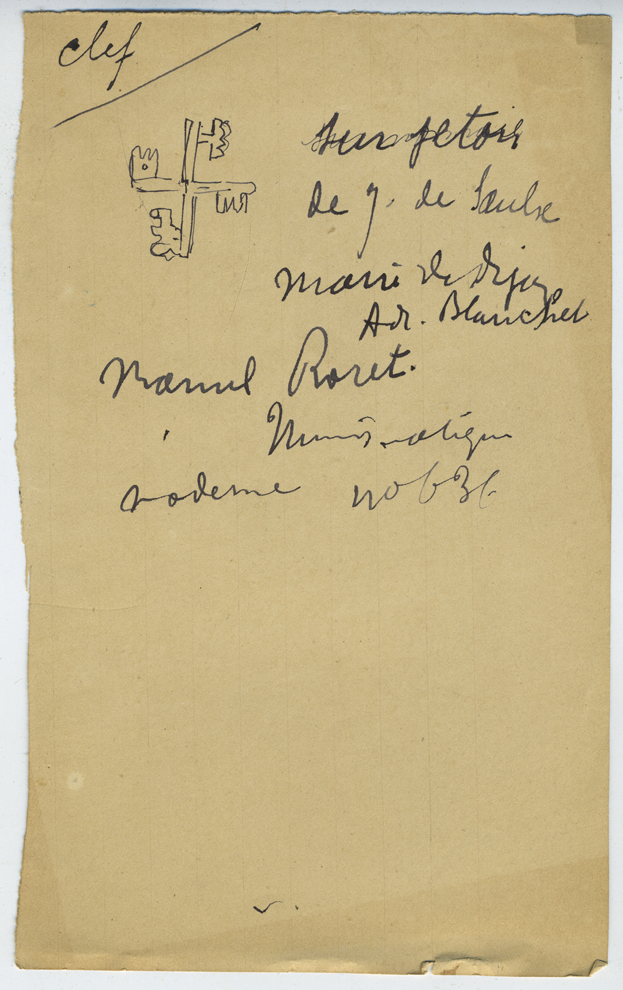 clef
sur jetons
de J. de Saulx
Maire de Dijon
Adr. Blanchet
Manuel Roret.
Numismatique
moderne no 636